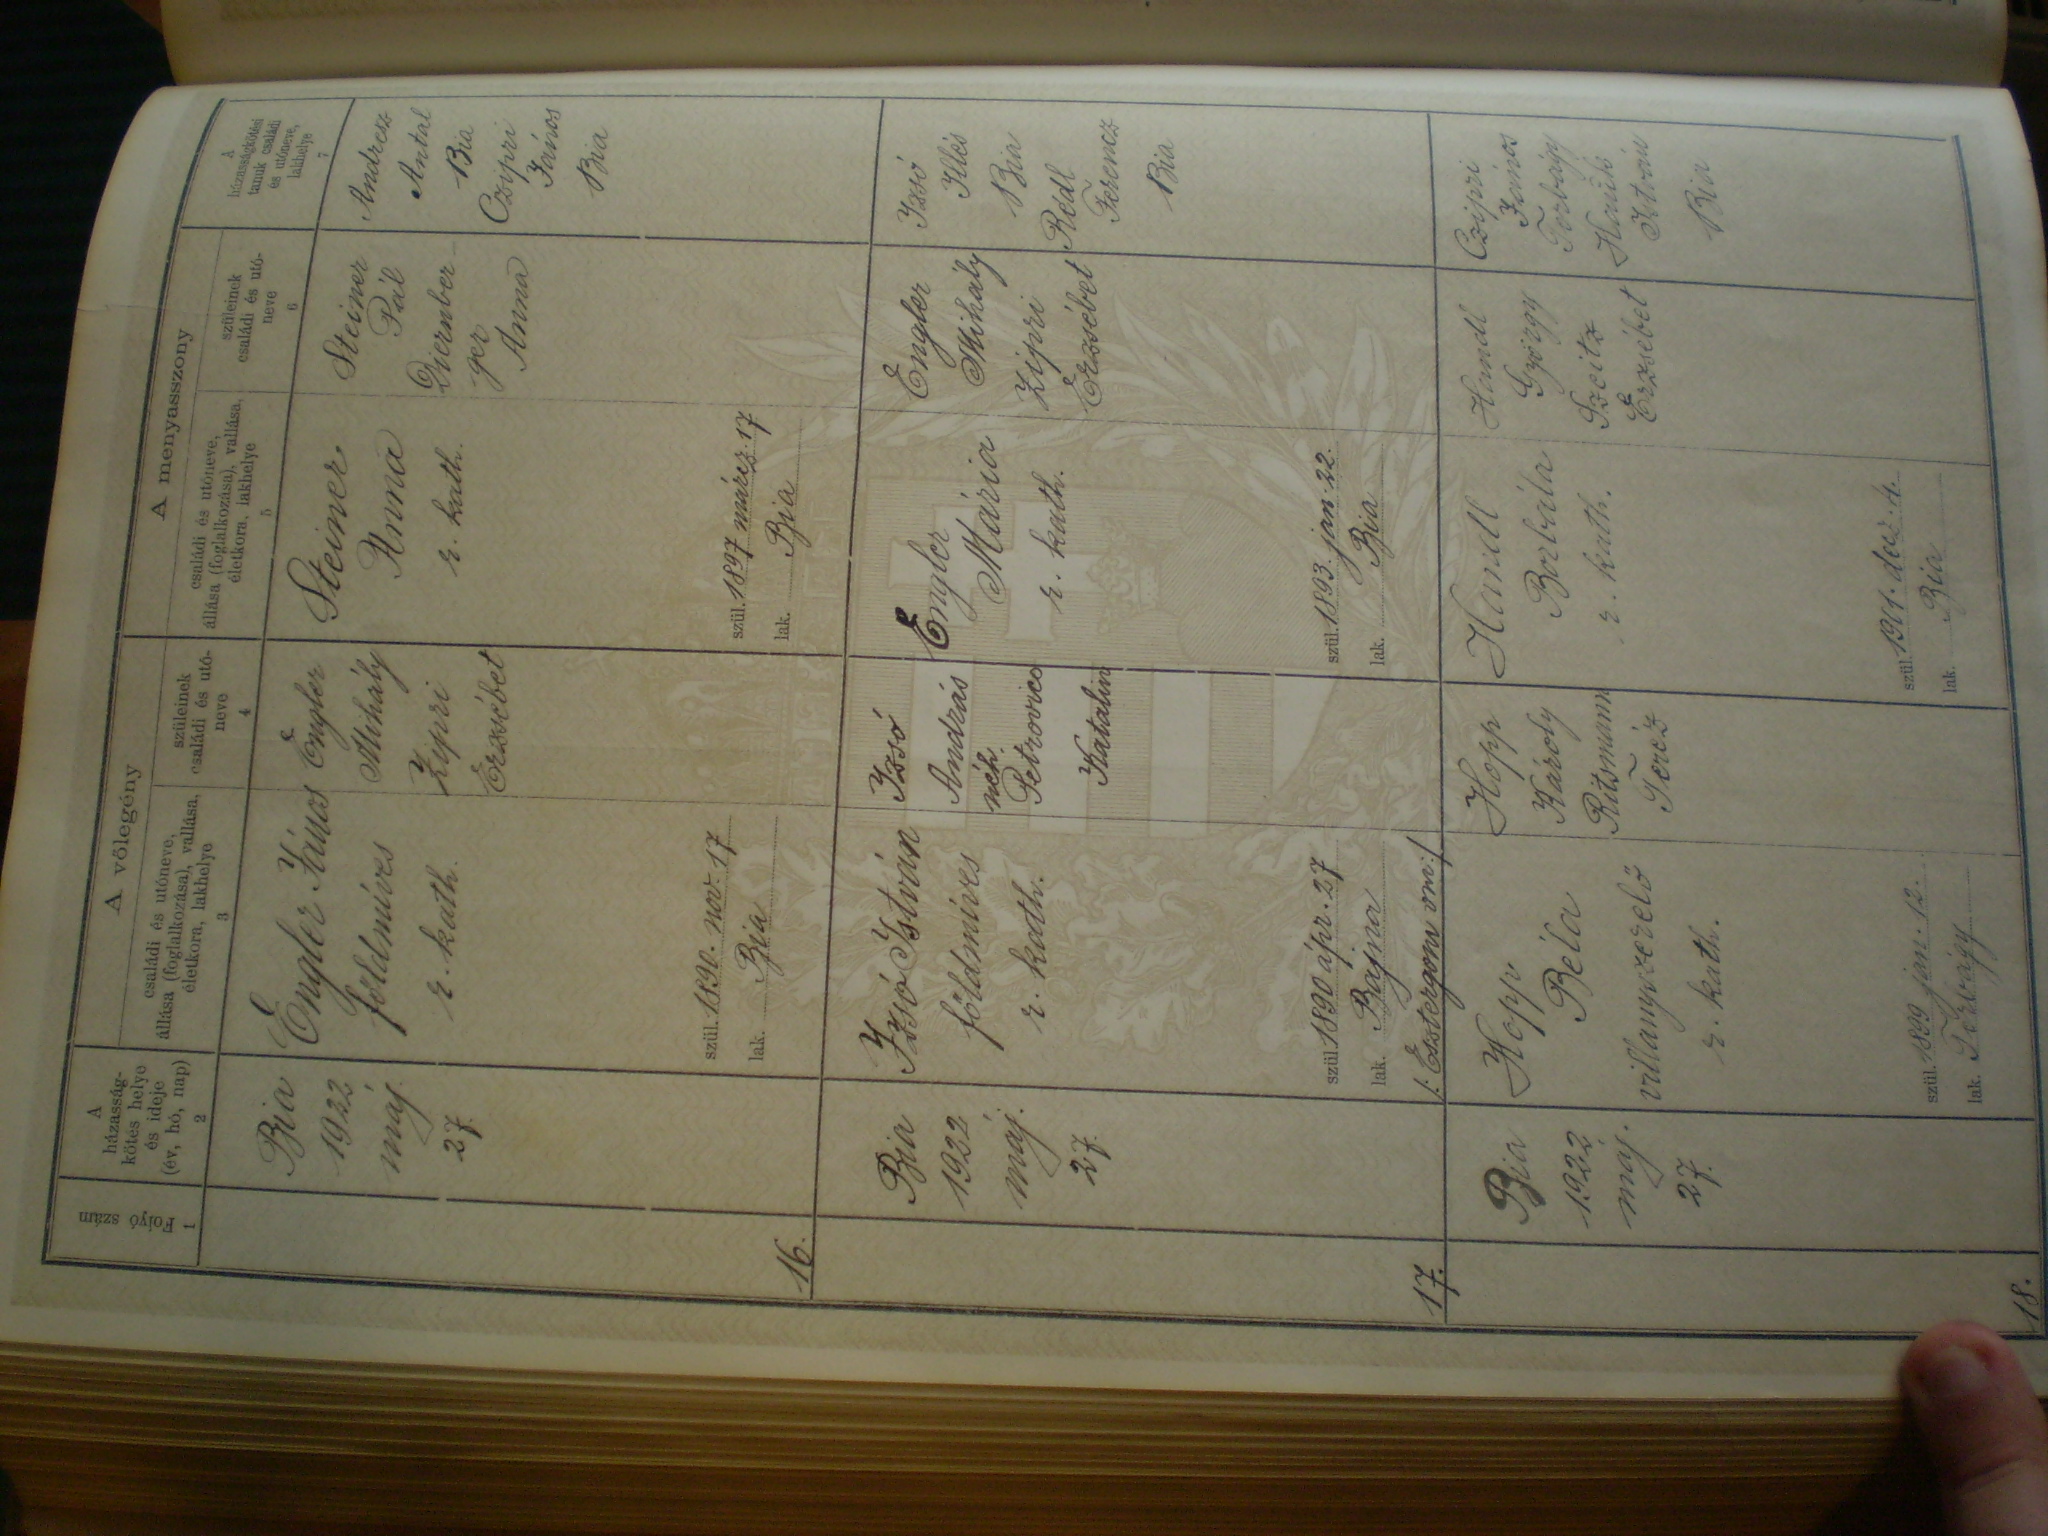 A
házasságkötési
tanuk családi
és utóneve,
lakhelye
7
A menyasszony
szüleinek
családi és utó-
neve
6
családi és utóneve,
állása (foglalkozása), vallása,
életkora, lakhelye
5
A vőlegény
szüleinek
családi és utó-
neve
4
családi és utóneve,
állása (foglalkozása), vallása,
életkora, lakhelye
3
A
házasság-
kötés helye
és ideje
(év, hó, nap)
2
Folyó szám
1
16.
Bia
1922
máj.
27.
Engler János
földmíves
r. kath.
szül. 1890. nov. 17
lak. Bia
Engler
Mihály
Zipri
Erzsébet
Steiner
Anna
r. kath.
szül. 1897 márcz. 17
lak. Bia
Steiner
Pál
Diernber-
ger
Anna
Andresz
Antal
Bia
Czipri
János
Bia
17.
Bia
1922
máj.
27.
Izsó István
földmíves
r. kath.
szül. 1890 ápr. 27
lak. Bajna
/: Esztergom vm :/
Izsó
András
néh.
Petrovics
Katalin
Engler
Mária
r. kath.
szül. 1893. jan. 22.
lak. Bia
Engler
Mihály
Zipri
Erzsébet
Izsó
Illés
Bia
Redl
Ferencz
Bia
18.
Bia
1922
máj.
27.
Hopp
Béla
villanyszerelő
r. kath.
szül. 1899 jan. 12.
lak. Torbágy
Hopp
Károly
Ritsmann
Teréz
Handl
Borbála
r. kath.
szül. 1901. decz. 4.
lak. Bia
Handl
György
Szeitz
Erzsébet
Czipri
János
Torbágy
Hauk
István
Bia